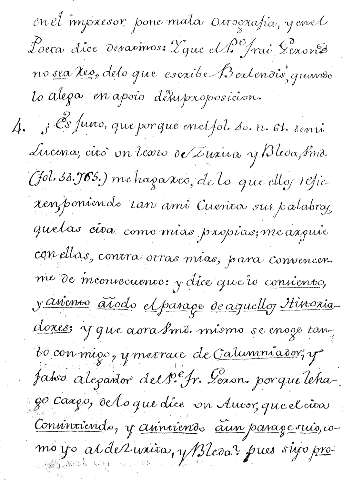 en el impresor pone mala Ortografia, y en el
Poeta dice desatinos: Y que el Pe. Frai Geron.
no sea reo, de lo que escribe Berlendis, quando
lo alega en apoio de su proposicion.
4. ¿Es justo, que porque en el fol. 50. n. 61. de mi
Lucena, citò un texto de Zurita y Bleda, Smd.
(fol. 58. 765.) me haga reo, de lo que ellos refie-
ren, poniendo tan a mi Cuenta sus palabras,
que las cita como mias propias; me arguie
con ellas, contra otras mias, para convencer-
me de inconsecuente: y dice que lo consiento,
y asiento à todo el pasage de aquellos Historia-
dores: y que aora Smd. mismo se enoge tan-
to con migo, y me trate de Calumniador, y
falso alegador del Pe. Fr. Geron. porque le ha-
go cargo, de lo que dice un Autor, que el cita
Consintiendo, y asintiendo à un pasage suio, co-
mo yo al de Zurita, y Bleda? pues si yo pro-